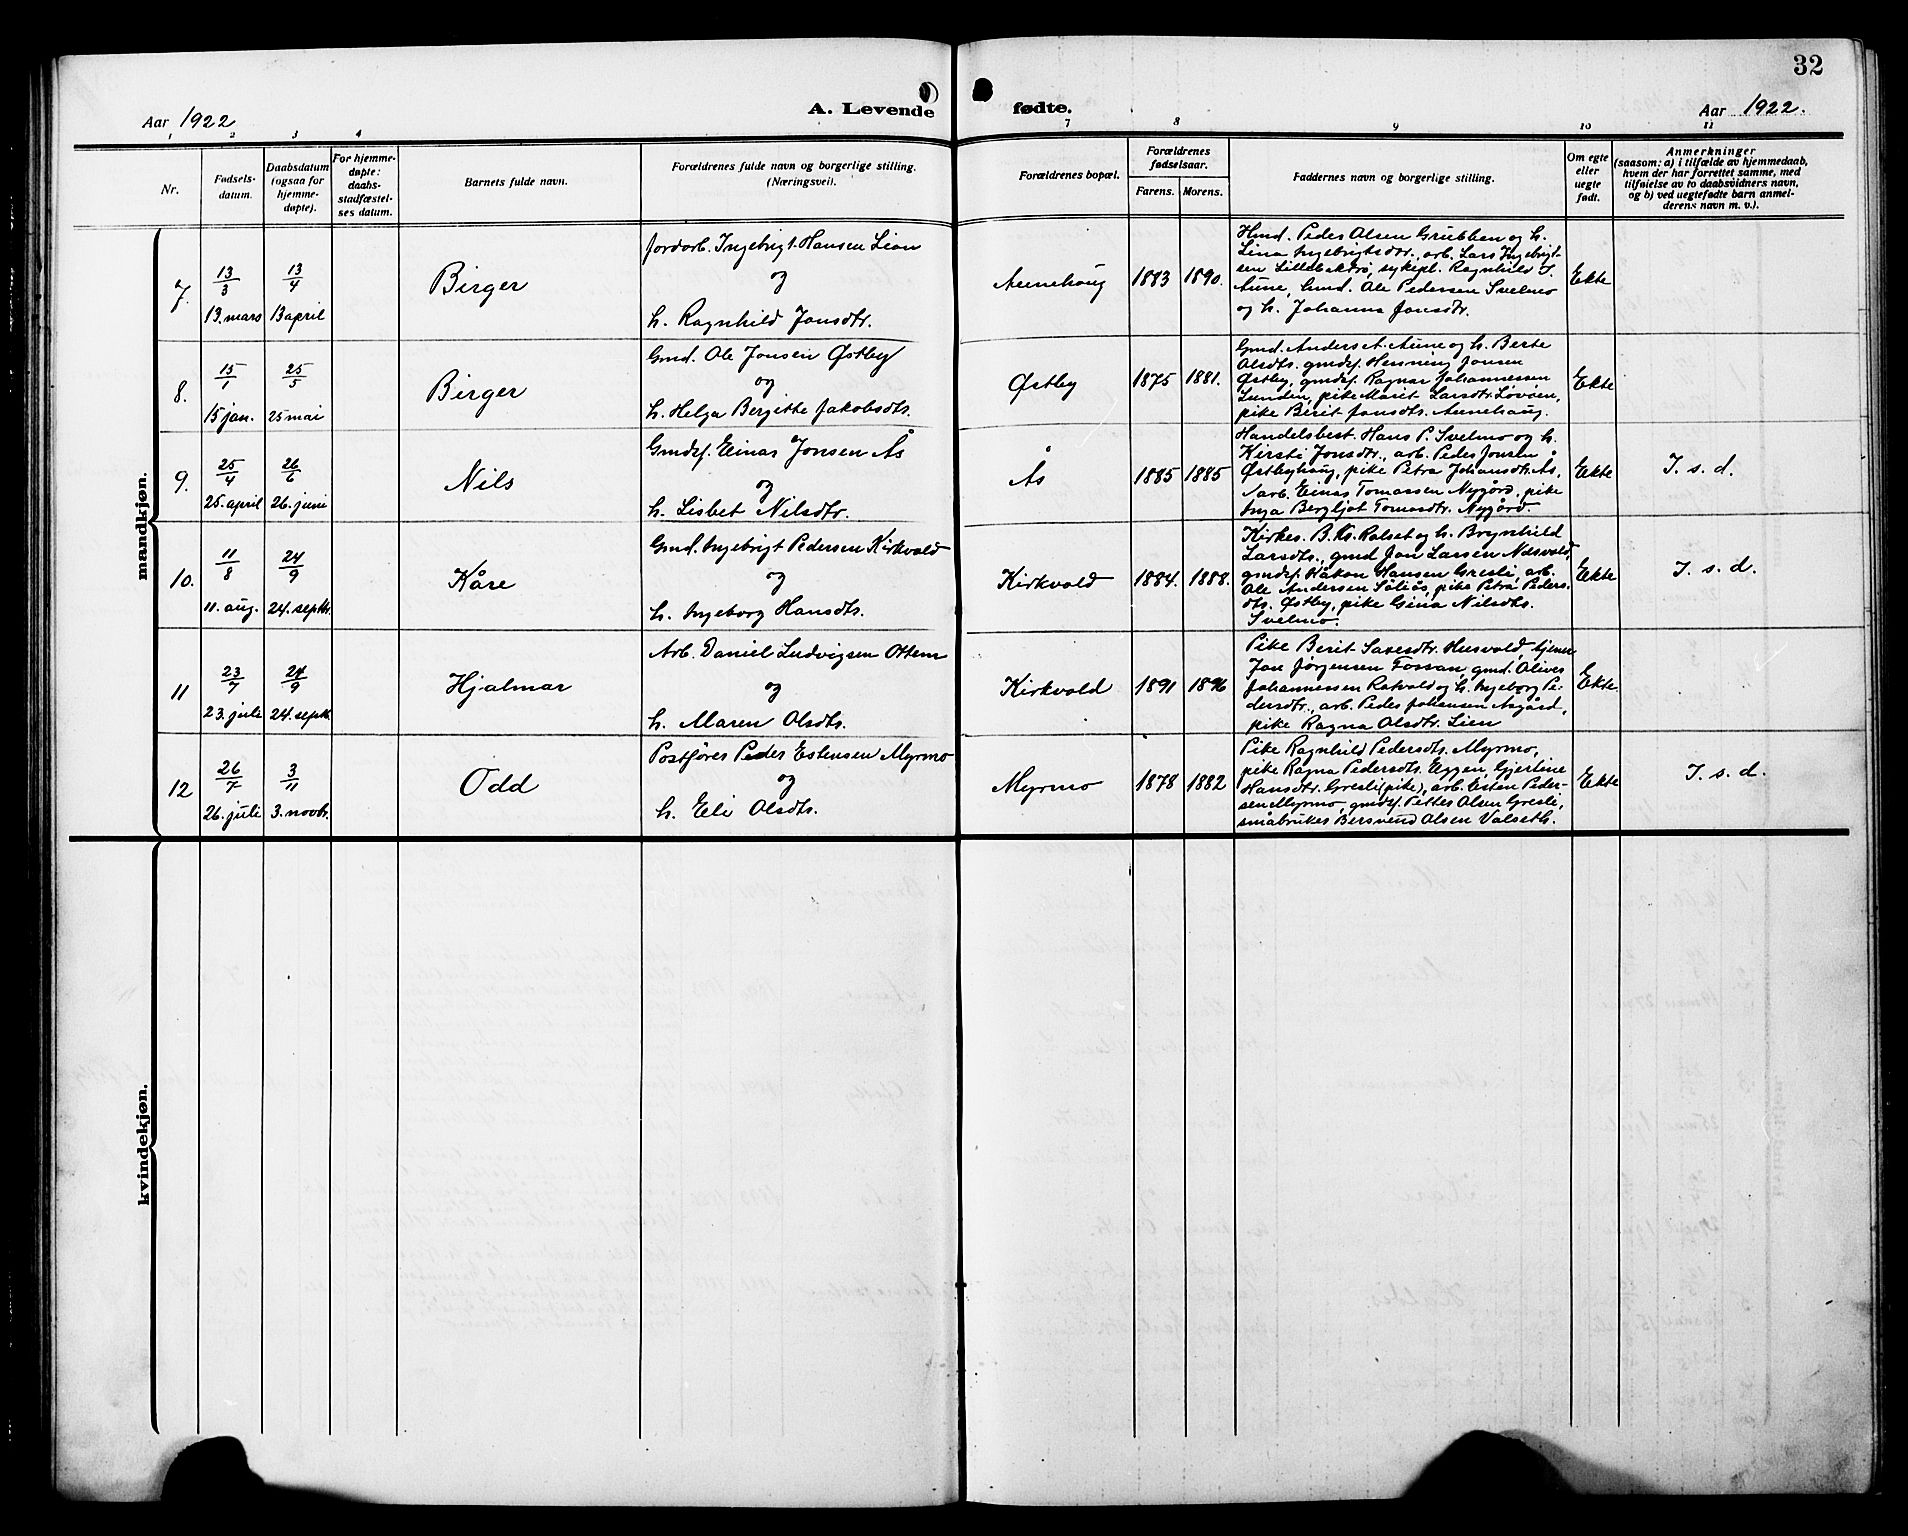 32
Aar 1922
A. Levende
fødte.
Aar 1922.
1 2 3 4 7 8 9 10 11
Nr.
Fødsels-
datum.
Daabsdatum
(ogsaa for
hjemme-
døpte).
For hjemme-
døpte:
daabs-
stadfæstel-
ses datum.
Barnets fulde navn.
Forældrenes fulde navn og borgerlige stilling.
(Næringsvei).
Forældrenes bopæl.
Forældrenes
fødselsaar.
Farens. Morens.
Faddernes navn og borgerlige stilling.
Om egte
eller
uegte
født.
Anmerkninger
(saasom: a) i tilfælde av hjemmedaab,
hvem der har forrettet samme, med
tilføielse av to daabsvidners navn,
og b) ved uegtefødte barn anmel-
derens navn m. v.).
mandkjøn.
7.
13/3
13. mars
13/4
13 april
Birger
Jordarb. Ingebrigt Hansen Lien
og
h. Ragnhild Jonsdtr.
Aunehaug
1883
1890.
Hmd. Peder Olsen Grubben og h.
Lina Ingebrigtsdtr., arb. Lars Ingebrigt-
sen Lillebakrø, sykepl. Ragnhild J.
Aune, Gmd. Ole Pedersen Svelmo
og h. Johanna Jonsdtr.
Ekte
8.
15/1
15 jan.
25/5
25 mai
Birger
Gmd. Ole Jonsen Østby
og
h. Helga Bergitte Jakobsdtr.
Østby
1875
1881.
Gmd. Anders A. Aune og h. Berte
Olsdtr. gmdsf. Henning Jonsen
Østby, gmdsf. Ragnar Johannessen
Lunden, pike Marit Larsdtr. Lovøen,
pike Berit Jonsdtr. Aunehaug.
Ekte
9.
25/4
25. april
26/6
26. juni
Nils
Gmdsf. Einar Jonsen Ås
og
h. Lisbet Nilsdtr.
Ås
1885
1885
Handelsbest. Hans P. Svelmo og h.
Kirsti Jonsdtr., arb. Peder Jonsen
Østbyhaug, pike Petra Johansdtr. Ås,
arb. Einar Tomassen Nygård, pike
Inga Bergljot Tomasdtr. Nygård
Ekte
I. s. d.
10.
11/8
11. aug.
24/9
24. septbr.
Kåre
Gmd. Ingebrigt Pedersen Kirkvold
og
h. Ingeborg Hansdtr.
Kirkvold
1884.
1888.
Kirkes. B. Kr. Rolset og h. Brynhild
Larsdtr., gmd Jon Larsen Nesvold,
gmdsf. Håkon Hansen Gresli, arb.
Ole Andersen Seliås, pike Petra Peders-
dtr. Østby, pike Gina Nilsdtr.
Svelmo.
Ekte
I. s. d.
11
23/7
23. juli
24/9
24. septbr.
Hjalmar
Arb. Daniel Ludvigsen Ottem
og
h. Maren Olsdtr.
Kirkvold
1891
1896
Pike Berit Saxesdtr. Husvold, tjener
Jon Jørgensen Fossan, gmd. Oliver
Johannessen Rotvold og h. Ingeborg Pe-
dersdtr., arb. Peder Johansen Asgård,
pike Ragna Olsdtr. Lien
Ekte.
12
26/7
26. juli
3/11
3. novbr.
Odd
Postfører Peder Estensen Myrmo
og
h. Eli Olsdtr.
Myrmo
1878
1882
Pike Ragnhild Pedersdtr. Myrmo,
pike Ragna Pedersdtr. Eggen, Gjertine
Hansdtr. Gresli (pike), arb. Esten Peder-
sen Myrmo, gmdsf. Petter Olsen Gresli,
småbruker Bersvend Olsen Valseth.
Ekte
I. s. d.
kvindekjøn.